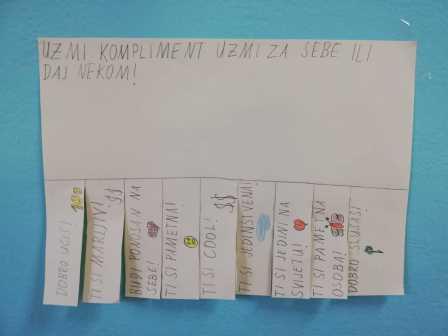 UZMI KOMPLIMENT UZMI ZA SEBE ILI
DAJ NEKOM!
DOBRO UČIŠ!
TI SI MARLJIV!
BUDI PONOSAN NA
SEBE!
TI SI PAMETNA!
TI SI COOL!
TI SI JEDINSTVENA!
TI SI JEDINI NA
SVIJETU!
TI SI PAMETNA
OSOBA!
DOBRO SLUŠAŠ!